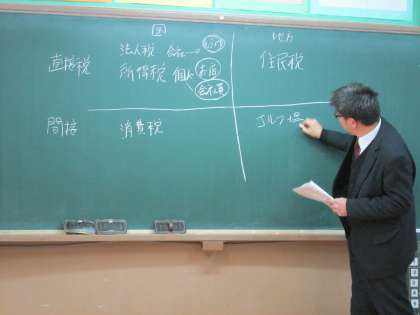 国 地方
直接税 法人税 会社 住民税
所得税 個人 お店 会社員
間接 消費税 ゴルフ場